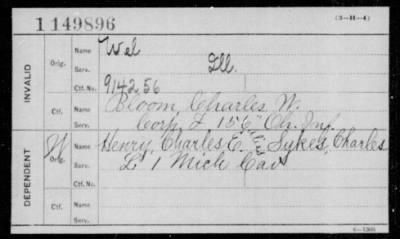 1149896
(3-H-4)
INVALID
Orig.
Name Wid
Serv. Ill.
Ctf. No. 914256
Ctf.
Name Bloom, Charles W.
Serv. Corp L 156" Inf.
DEPENDENT
W
Orig.
Name Henry, Charles E. alias Sykes, Charles
Serv. L 1 Mich Cav
Ctf. No.
Ctf.
Name
Serv.